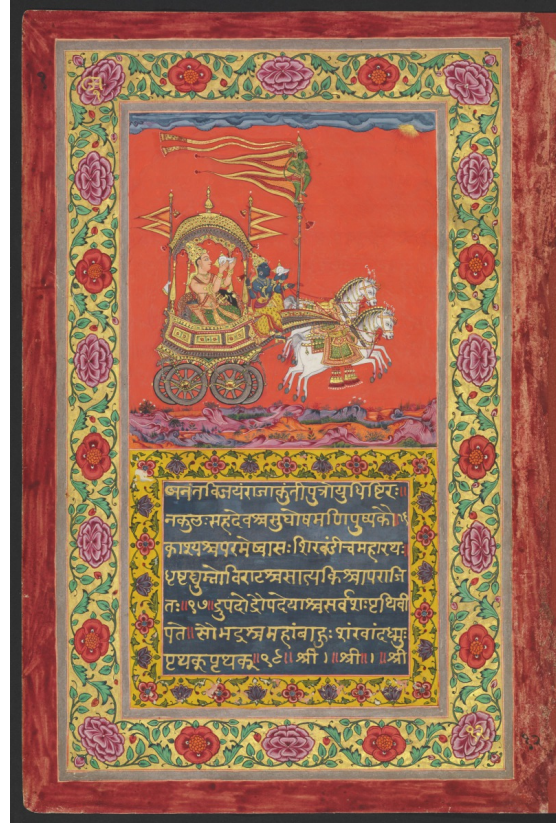 अनंतविजयंराजाकुंतीपुत्रोयुधिष्टिरः॥
नकुलःसहदेवश्चसुघोषमणिपुष्पकौ॥१६
काश्यश्चपरमेष्वासःशिरवंडीचमहारथः
धृष्टद्युम्नोविराटश्चसात्यकिश्चापराजि
तः॥१७॥द्रुपदोद्रौपदेयाश्चसर्वशःपृथिवी
पते॥सौभद्रश्चमहांबाहुःशंरवांदध्मुः
पृथक्पृथक्॥१८॥श्री।॥श्री॥।॥श्री